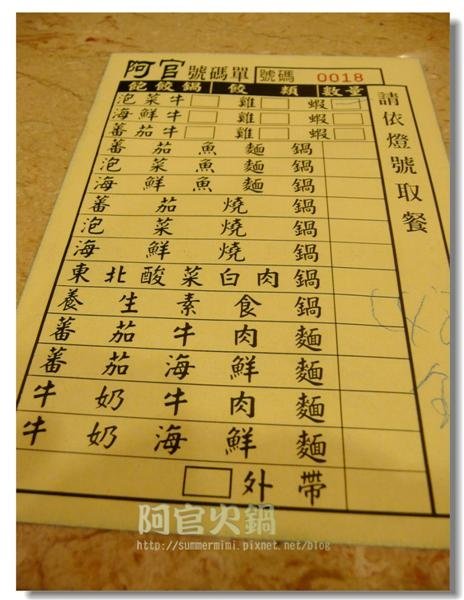 阿官 號碼單 號碼 0018
飽餃鍋 餃類 數量
泡菜牛 雞 蝦
海鮮牛 雞 蝦
蕃茄牛 雞 蝦
蕃茄魚麵鍋
泡菜魚麵鍋
海鮮魚麵鍋
蕃茄燒鍋
泡菜燒鍋
海鮮燒鍋
東北酸菜白肉鍋
養生素食鍋
蕃茄牛肉麵
蕃茄海鮮麵
牛奶牛肉麵
牛奶海鮮麵
外帶
請依燈號取餐
阿官火鍋
http://summermimi.pixnet.net/blog